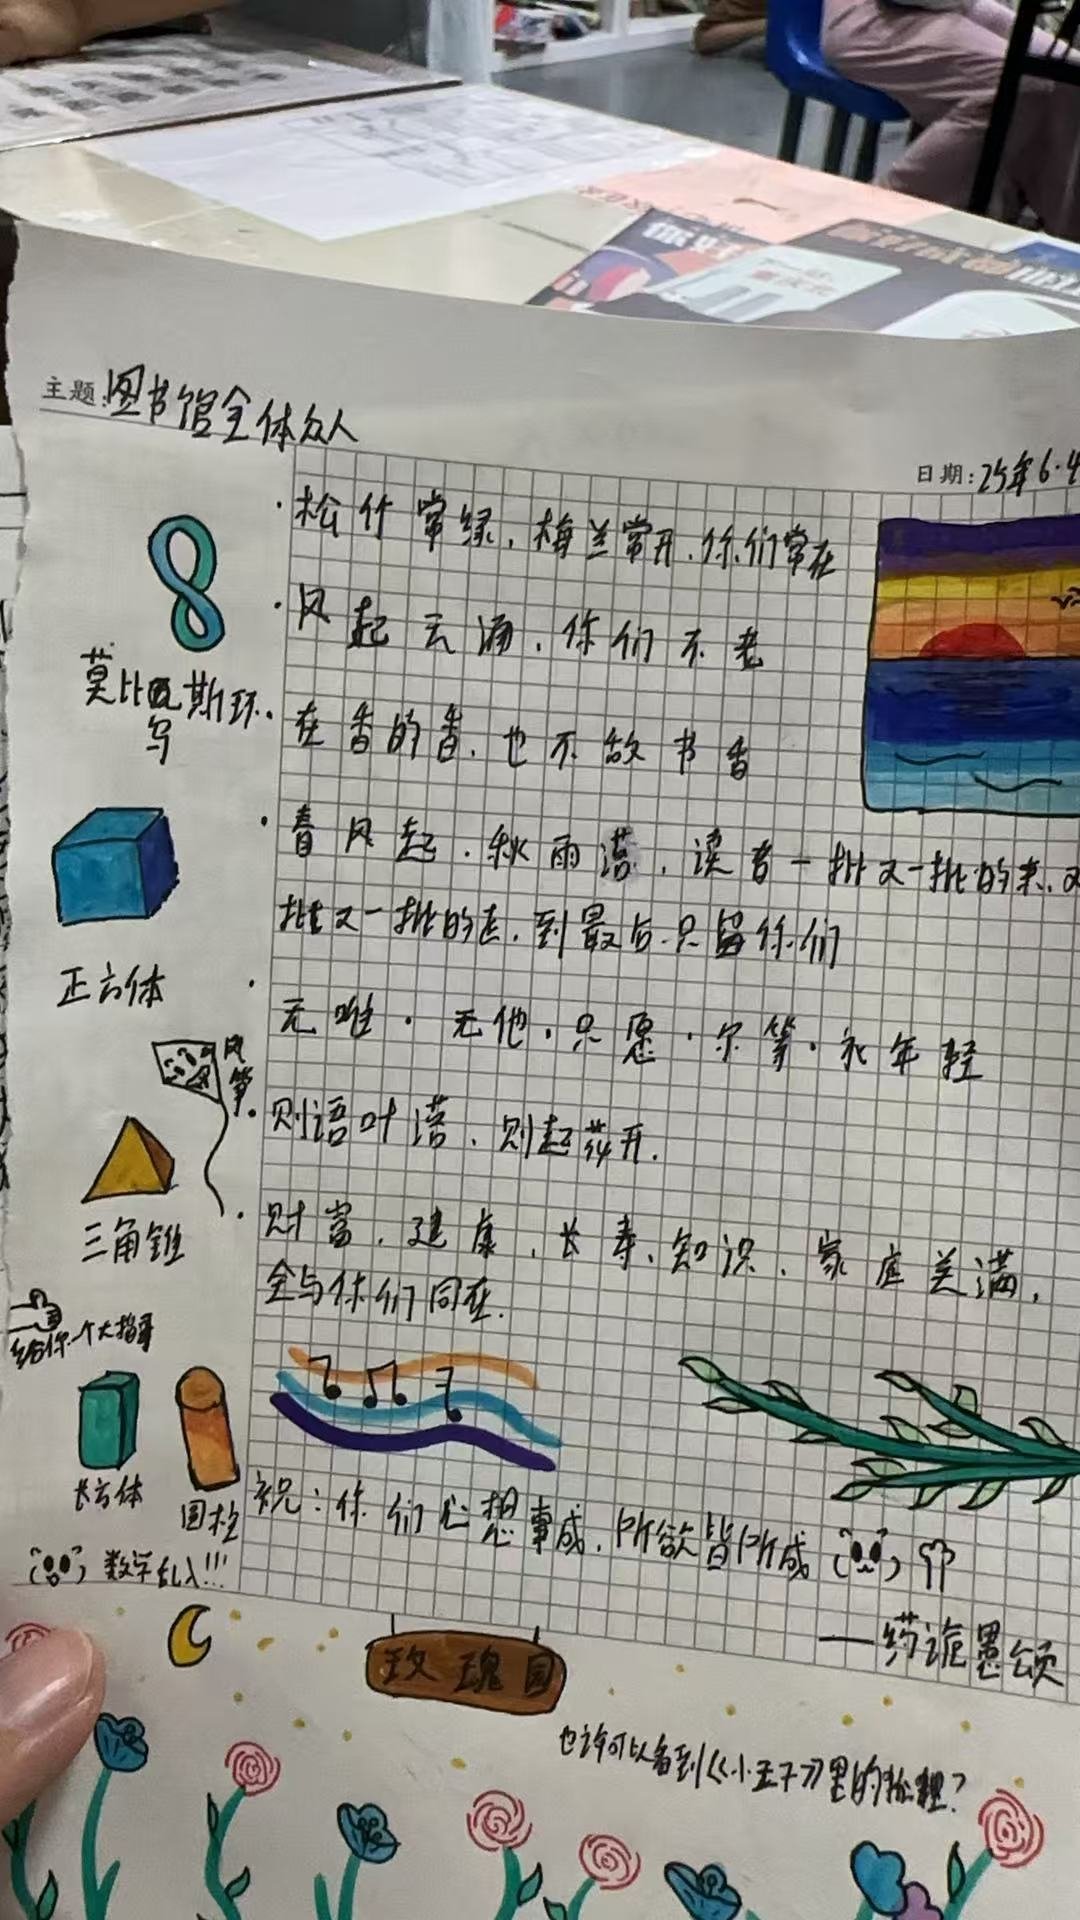 主题:图书馆全体众人
日期:25年6·4
·松竹常绿,梅兰常开,你们常在
·风起云涌,你们不老
·在香的香,也不敌书香
·春风起,秋雨落,读者一批又一批的来,又
批又一批的走,到最后只留你们
·无唯·无他·只愿·尔等·永年轻
·则语叶落,则起花开.
·财富,建康,长寿,知识,家庭美满,
全与你们同在.
祝:你们心想事成,所欲皆所成
莫比乌斯环
正方体
风筝
三角锥
给你一个大拇指
长方体
圆柱
数学乱入!!!
玫瑰园
也许可以看到《小王子》里的狐狸?